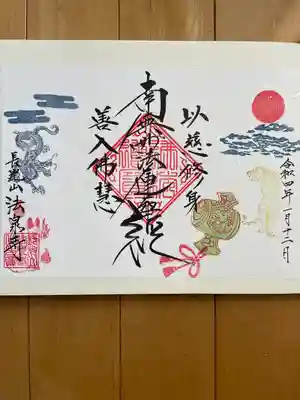 以慈修身
南無妙法蓮華経
善入佛慧
令和四年一月十二日
法泉寺